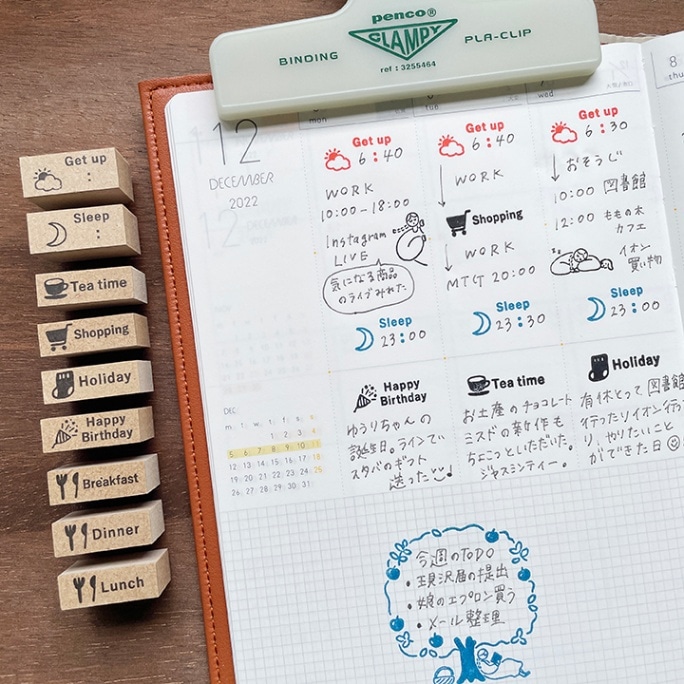 penco®
BINDING CLAMPY PLA-CLIP
ref : 3255464
Get up
:
Sleep
:
Tea time
Shopping
Holiday
Happy
Birthday
Breakfast
Dinner
Lunch
12
DECEMBER
2022
DEC.
m. t. w. t. f. s. s.
1 2 3 4
5 6 7 8 9 10 11
12 13 14 15 16 17 18
19 20 21 22 23 24 25
26 27 28 29 30 31
mon
Get up
6:40
WORK
10:00-18:00
Instagram
LIVE
気になる商品
のライブみれた
Sleep
23:00
Happy
Birthday
ゆうりちゃんの
誕生日。ラインで
スタバのギフト
送った
tue
Get up
6:40
WORK
Shopping
WORK
MTG 20:00
Sleep
23:30
Tea time
お土産のチョコレート
ミスドの新作も
ちょこっといただいた。
ジャスミンティー。
wed
Get up
6:30
おそうじ
10:00 図書館
12:00 ももの木
カフェ
イオン
買い物
Sleep
23:00
Holiday
有休とって図書館
行ったりイオン行った
り、やりたいこと
ができた日
8
thu
今週のTODO
・現況届の提出
・娘のエプロン買う
・メール整理